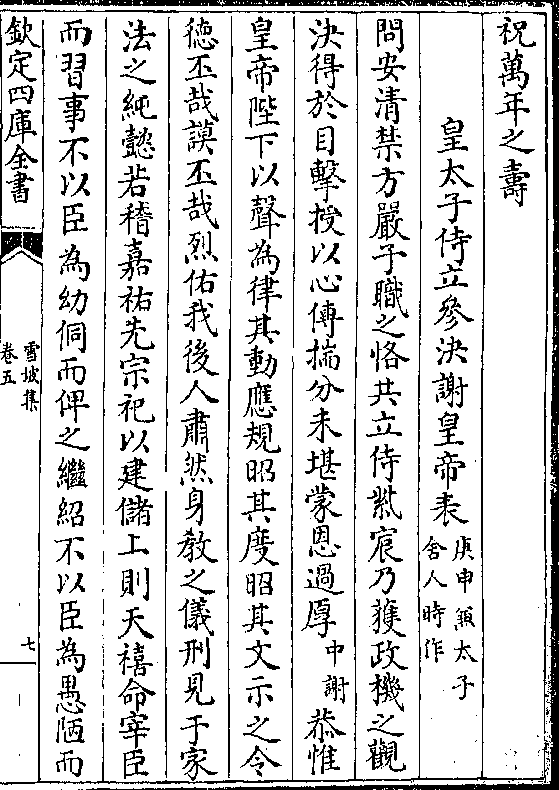 祝萬年之壽
皇太子侍立參決謝皇帝表 庚申兼太子舍人時作
問安清禁方嚴子職之恪共立侍黼扆乃獲政機之觀
決得於目擊授以心傳揣分未堪蒙恩過厚 中謝 恭惟
皇帝陛下以聲為律其動應規昭其度昭其文示之令
徳丕哉謨丕哉烈佑我後人肅然身教之儀刑見于家
法之純懿若稽嘉祐先宗祀以建儲上則天禧命宰臣
而習事不以臣為幼侗而俾之繼紹不以臣為愚陋而
欽定四庫全書
雪坡集
卷五
七